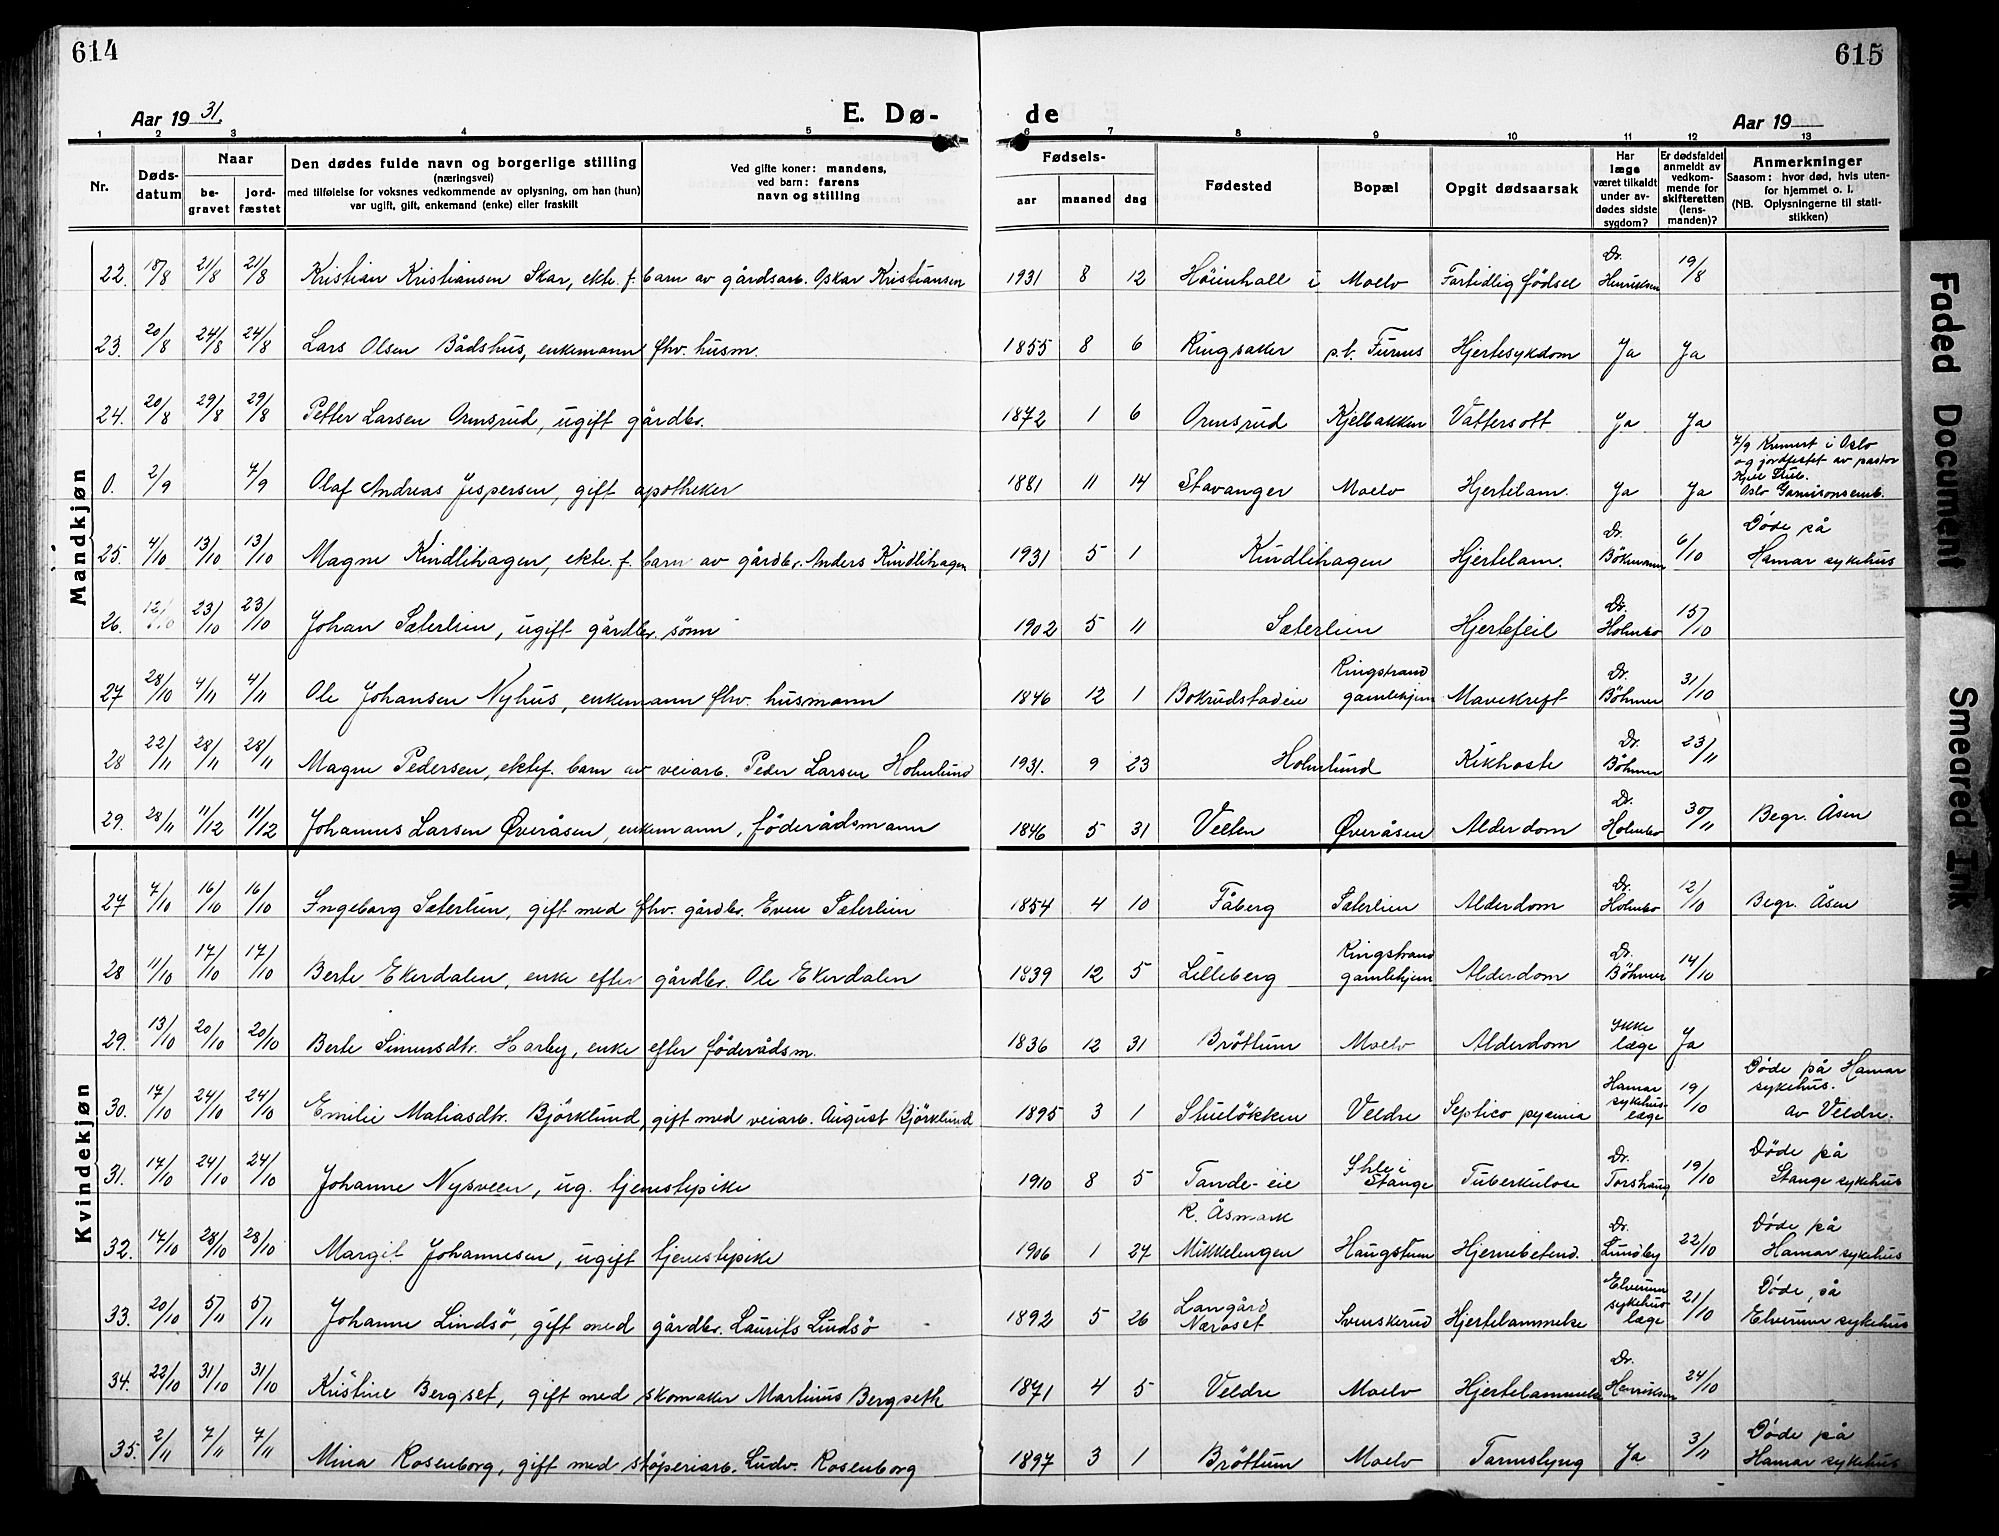 614
615
Aar 1931
E. Dø-
de
Aar 19
1 2 3 4 5 6 7 8 9 10 11 12 13
Nr.
Døds-
datum
Naar
be-
gravet
jord-
fæstet
Den dødes fulde navn og borgerlige stilling
(næringsvei)
med tilføielse for voksnes vedkommende av oplysning, om han (hun)
var ugift, gift, enkemand (enke) eller fraskilt
Ved gifte koner: mandens,
ved barn: farens
navn og stilling
Fødsels-
aar maaned dag
Fødested
Bopæl
Opgit dødsaarsak
Har
læge
været tilkaldt
under av-
dødes sidste
sygdom?
Er dødsfaldet
anmeldt av
vedkom-
mende for
skifteretten
(lens-
manden)?
Anmerkninger
Saasom: hvor død, hvis uten-
for hjemmet o. l.
(NB. Oplysningerne til stati-
stikken)
Mandkjøn
22. 18/8 21/8 21/8 Kristian Kristiansen Skar, ekte. f. barn av gårdsarb. Oskar Kristiansen 1931 8 12 Höienhall i Moelv Fortidlig födsel Dr. Henriksen 19/8
23. 20/8 24/8 24/8 Lars Olsen Bådshus, enkemann fhv. husm. 1855 8 6 Ringsaker p.b. Furnes Hjertesykdom Ja Ja
24. 20/8 29/8 29/8 Petter Larsen Ormsrud, ugift gårdbr. 1872 1 6 Ormsrud Kjelbakken Vattersott Ja Ja
0. 2/9 7/9 Olaf Andreas Jespersen, gift apotheker 1881 11 14 Stavanger Moelv Hjertelam. Ja Ja 7/9 Kremert i Oslo
og jordfestet av pastor
Kjell Stub.
Oslo Garnisonsmb.
25. 4/10 13/10 13/10 Magne Kindlihagen, ekte. f. barn av gårdbr. Anders Kindlihagen 1931 5 1 Kindlihagen Hjertelam. Dr. Bökmann 6/10 Døde på
Hamar sykehus
26. 12/10 23/10 23/10 Johan Sæterlien, ugift gårdbr. sønn 1902 5 11 Sæterlien Hjertefeil Dr. Holmbo 15/10
27 28/10 4/11 4/11 Ole Johansen Nyhus, enkemann fhv. husmann 1846 12 1 Bokrudstadeie Ringstrand
gamlehjem Mavekreft Dr. Böhmer 31/10
28 22/11 28/11 28/11 Magne Pedersen, ektef. barn av veiarb. Peder Larsen Holmlund 1931. 9 23 Holmlund Kikhoste Dr. Böhmer 23/11
29. 28/11 11/12 11/12 Johannes Larsen Øveråsen, enkemann, föderådsmann 1846 5 31 Veelen Øveråsen Alderdom Dr. Holmbo 30/11 Begr. Åsen
Kvindekjøn
27 7/10 16/10 16/10 Ingeborg Sæterlien, gift med fhv. gårdbr. Even Sæterlien 1854 4 10 Fåberg Sæterlien Alderdom Dr. Holmbo 12/10 Begr. Åsen
28 11/10 17/10 17/10 Berte Ekerdalen, enke efter gårdbr. Ole Ekerdalen 1839 12 5 Lilleberg Ringstrand
gamlehjem Alderdom Dr. Böhmer 14/10
29. 13/10 20/10 20/10 Berte Simensdtr. Harby, enke efter föderådsm. 1836 12 31 Bröttum Moelv Alderdom Ikke
læge Ja
30. 17/10 24/10 24/10 Emilie Matiasdtr. Björklund, gift med veiarb. August Björklund 1895 3 1 Stuelökken Veldre Septico pyæmia Hamar
sykehus-
læge 19/10 Døde på Hamar
sykehus.
av Veldre.
31. 17/10 24/10 24/10 Johanne Nysveen, ug. tjenestepike 1910 8 5 Tande-eie i
Stange Tuberkulose Dr. Torshaug 19/10 Døde på
Stange sykehus
32. 17/10 28/10 28/10 Margit Johannesen, ugift tjenestepike 1906 1 27 R. Åsmark
Mikkelengen Haugstum Hjernebetend. Dr. Lundby 22/10 Døde på
Hamar sykehus
33. 20/10 5/11 5/11 Johanne Lindsö, gift med gårdbr. Laurits Lindsö 1892 5 26 Langård
Næroset Svenskerud Hjertelammelse Elverum
sykehus-
læge 21/10 Døde, på
Elverum sykehus
34. 22/10 31/10 31/10 Kristine Bergset, gift med skomaker Martinus Bergseth 1871 4 5 Veldre Moelv Hjertelammelse Dr. Henriksen 24/10
35. 2/11 7/11 7/11 Mina Rosenborg, gift med støperiarb. Ludv. Rosenborg 1897 3 1 Bröttum Moelv Tarmslyng Ja 3/11 Døde på
Hamar sykehus
Faded Document
Smeared Ink